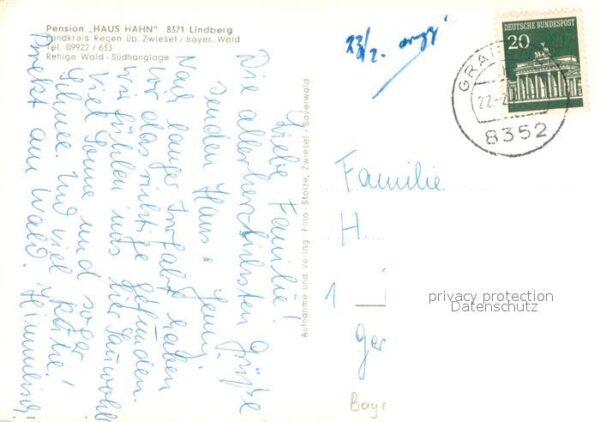 Pension „HAUS HAHN" 8371 Lindberg
Landkreis Regen üb. Zwiesel / Bayer. Wald
Tel. 09922 / 653
Ruhige Wald - Südhanglage
Liebe Familie!
Die allerherzlichsten Grüße
senden Hans u.
Nach langer Irrfahrt haben
wir das richtige gefunden.
Wir fühlen uns hier sauwohl
Viel Sonne und sogar
Schnee. Und viel Ruhe!
Direkt am Wald. Himmlisch!
Aufnahme und Verlag: Foto - Stolze, Zwiesel - Bayerwald
23/2.
DEUTSCHE BUNDESPOST
20
GRA
22.-2.
8352
Familie
H
1
Ger
Baye
privacy protection
Datenschutz